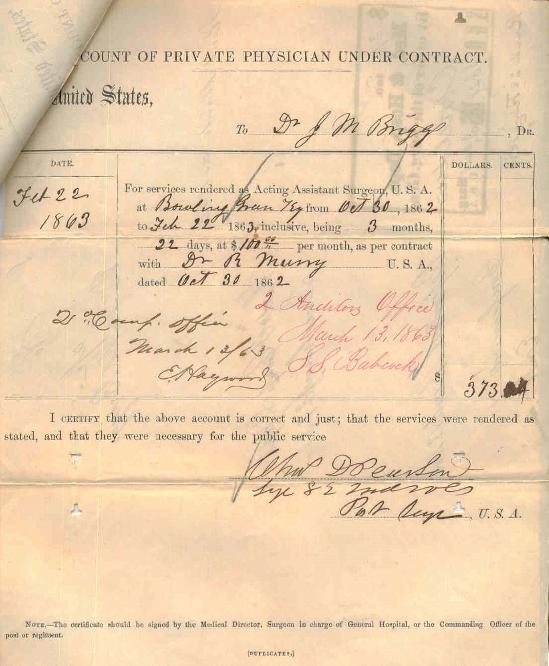 COUNT OF PRIVATE PHYSICIAN UNDER CONTRACT.
United States,
To Dr J M Briggs, DR.
DATE. DOLLARS. CENTS.
Feb 22
1863
For services rendered as Acting Assistant Surgeon, U. S. A.
at Bowling Green Ky from Oct 30, 1862
to Feb 22 1863, inclusive, being 3 months,
22 days, at $100.00 per month, as per contract
with Dr R Murry U. S. A.,
dated Oct 30 1862
2 Auditors Office
March 13, 1863
S.S. Babcock
2d Comp. office
March 13/63
E Haywood
$ 373.
I CERTIFY that the above account is correct and just; that the services were rendered as
stated, and that they were necessary for the public service
Chas D Pearson
Surg 82 Ind Vols
Post Surg, U. S. A.
NOTE.—The certificate should be signed by the Medical Director, Surgeon in charge of General Hospital, or the Commanding Officer of the
post or regiment.
[DUPLICATES.]